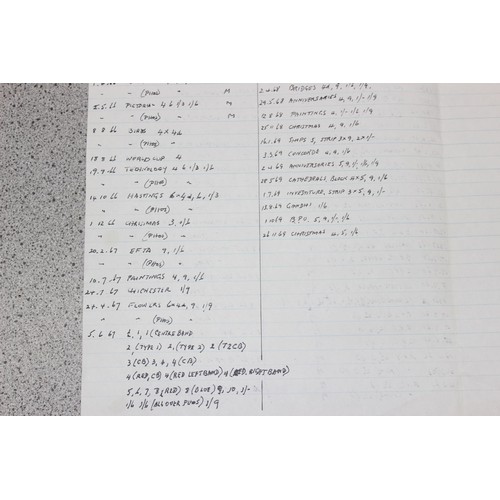 " - (PHOS) " M
2.5.66 PICTORIAL 4 6 1/3 1/6 M
" - (PHOS) " M
8 8 66 BIRDS 4 x 4d
" - (PHOS) "
18.8 66 WORLD CUP 4
19.9 66 TECHNOLOGY 4 6 1/3 1/6
" " (PHOS) "
14.10 66 HASTINGS 6 x 4d, 6, 1/3
" " (PHOS) "
1.12 66 CHRISTMAS 3, 1/6
" - (PHOS) -
20.2.67 EFTA 9, 1/6
" (PHOS) "
10.7.67 PAINTINGS 4, 9, 1/6
24.7.67 CHICHESTER 1/9
24.4.67 FLOWERS 6x4d, 9. 1/9
" " (PHOS) "
5.6 67 ½, 1, 1 (CENTRE BAND
2, (TYPE 1) 2, (TYPE 2) 2 (T2CB)
3 (CB) 3, 4, 4 (CB)
4 (RED, CB) 4 (RED LEFT BAND) 4 (RED, RIGHT BAND)
5, 6, 7, 8 (RED) 8 (BLUE) 9, 10, 1/-
1/6 1/6 (ALL OVER PHOS) 1/9
BRIDGES 4d, 9, 1/6, 1/9,
29.5.68 ANNIVERSARIES 4, 9, 1/- 1/9
12.8.68 PAINTINGS 4, 1/- 1/6 1/9
25.11.68 CHRISTMAS 4, 9, 1/6
15.1.69 SHIPS 5, STRIP 3x9, 2x1/-
3.3.69 CONCORDE 4, 9, 1/6
2.4.69 ANNIVERSARIES 5, 9, 1/-, 1/6, 1/9
28.5.69 CATHEDRALS, BLOCK 4x5, 9, 1/6
1.7.69 INVESTITURE, STRIP 3x5, 9, 1/-
13.8.69 GANDHI 1/6
1.10.69 B.P.O. 5, 9, 1/-, 1/6
26.11.69 CHRISTMAS 4, 5, 1/6